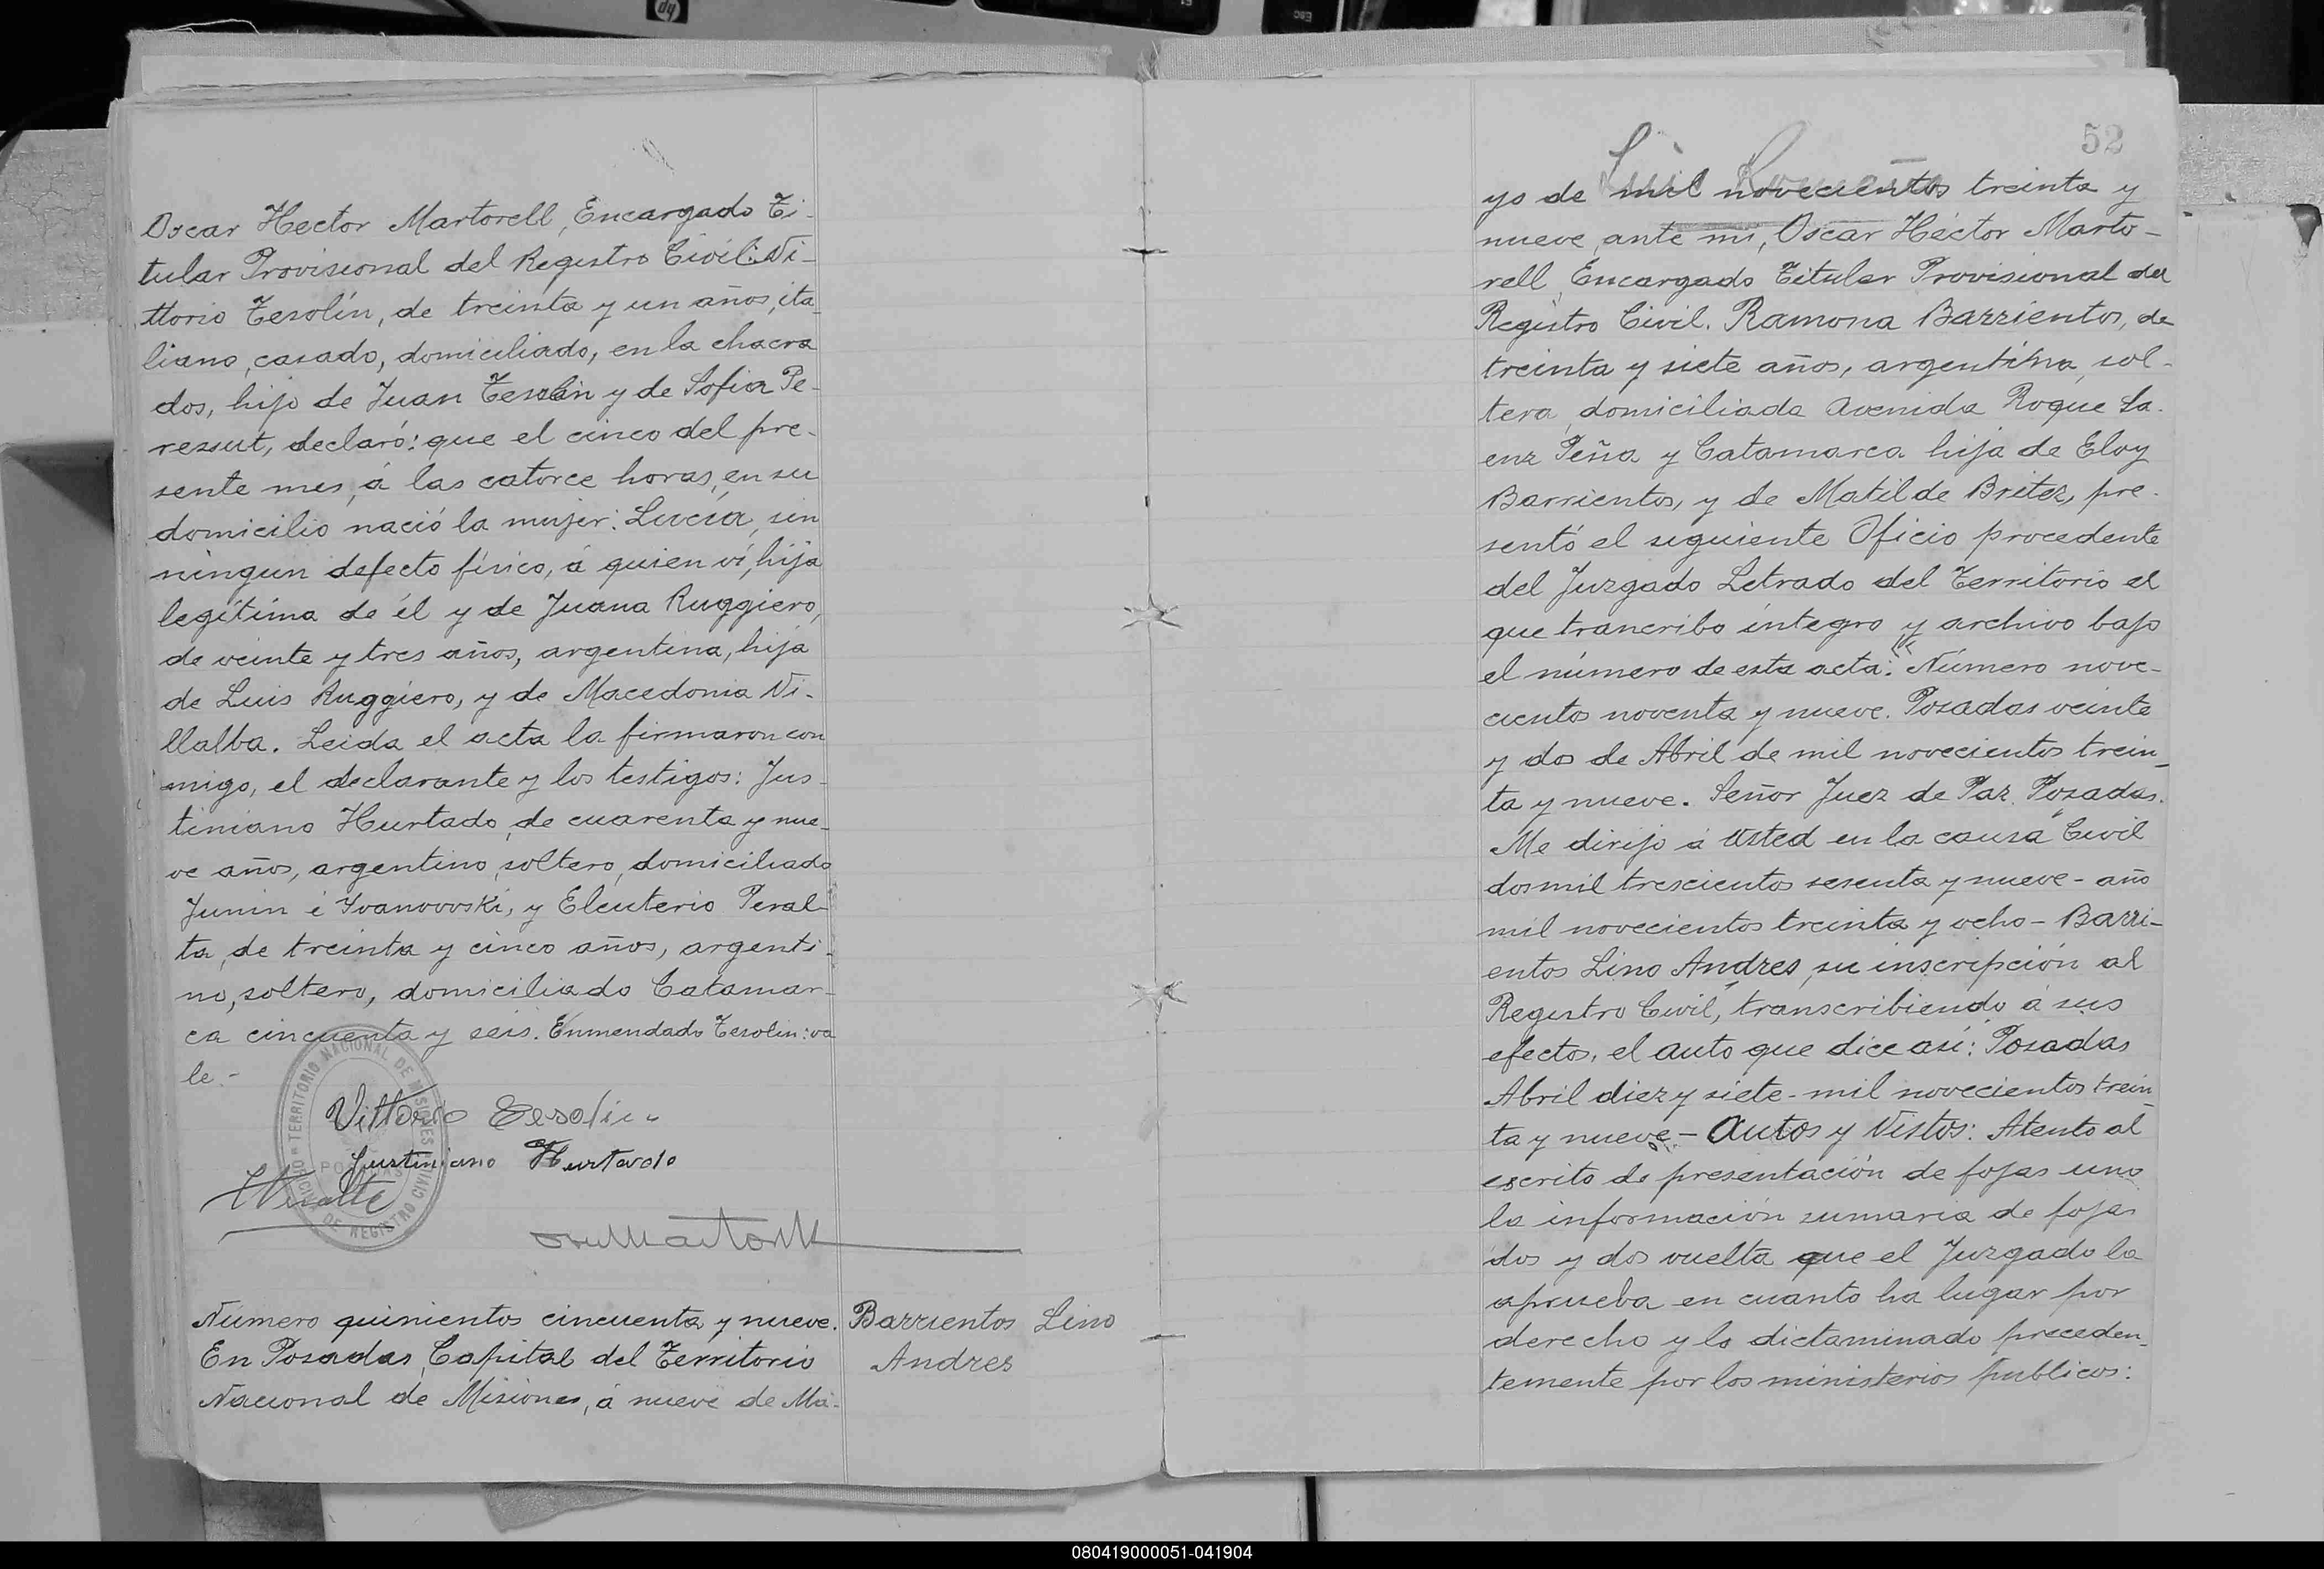 Oscar Hector Martorell, Encargado Ti-
tular Provisional del Registro Civil: Vi-
ttorio Tesolin, de treinta y un años, ita
liano, casado, domiciliado, en la chacra
dos, hijo de Juan Tesolin y de Sofia Pe-
ressut, declaró: que el cinco del pre-
sente mes, á las catorce horas, en su
domicilio nació la mujer: Lucía, sin
ningun defecto físico, á quien ví, hija
legítima de él y de Juana Ruggiero,
de veinte y tres años, argentina, hija
de Luis Ruggiero, y de Macedonia Vi-
llalba. Leida el acta la firmaron con
migo, el declarante y los testigos: Jus-
tiniano Hurtado, de cuarenta y nue-
ve años, argentino, soltero, domiciliado
Junin é Ivanovski, y Eleuterio Peral-
ta, de treinta y cinco años, argenti-
no, soltero, domiciliado Catamar-
ca cincuenta y seis. Enmendado Tesolin: va
le.-
TERRITORIO NACIONAL DE MISIONES
POSADAS
OFICINA DE REGISTRO CIVIL
Vittorio Tesolin
Justiniano Hurtado
Número quinientos cincuenta y nueve.
En Posadas, Capital del Territorio
Nacional de Misiones, á nueve de Ma-
Barrientos Lino
Andres
52
yo de mil novecientos treinta y
nueve, ante mi, Oscar Héctor Marto-
rell, Encargado Titular Provisional del
Registro Civil. Ramona Barrientos, de
treinta y siete años, argentina, sol-
tera, domiciliada Avenida Roque Sa-
enz Peña y Catamarca hija de Eloy
Barrientos, y de Matilde Britez, pre-
sentó el siguiente Oficio procedente
del Juzgado Letrado del Territorio el
que trancribo íntegro y archivo bajo
el número de esta acta: "Número nove-
cientos noventa y nueve. Posadas veinte
y dos de Abril de mil novecientos trein-
ta y nueve. Señor Juez de Paz. Posadas.
Me dirijo á Usted en la causa "Civil
dos mil trescientos sesenta y nueve - año
mil novecientos treinta y ocho - Barri-
entos Lino Andres, su inscripción al
Registro Civil", transcribiendo á sus
efectos, el auto que dice así: "Posadas
Abril diez y siete - mil novecientos trein-
ta y nueve - Autos y Vistos: Atento al
escrito de presentación de fojas uno
la información sumaria de fojas
dos y dos vuelta que el Juzgado la
aprueba en cuanto ha lugar por
derecho y lo dictaminado preceden-
temente por los ministerios publicos:
080419000051-041904